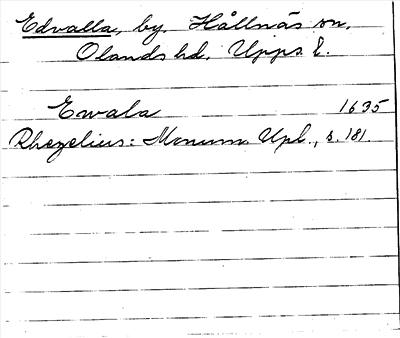 Edvalla, by, Hållnäs sn,
Olands hd, Upps. l.
Ewala 1635
Rhezelius: Monum. Upl., s. 181.